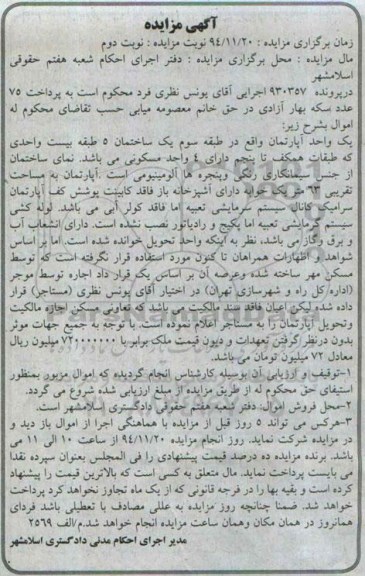 آگهی مزایده
زمان برگزاری مزایده : ۹۴/۱۱/۲۰ نوبت مزایده : نوبت دوم
مال مزایده : محل برگزاری مزایده : دفتر اجرای احکام شعبه هفتم حقوقی
اسلامشهر
درپرونده ۹۳۰۳۵۷ اجرایی آقای یونس نظری فرد محکوم است به پرداخت ۷۵
عدد سکه بهار آزادی در حق خانم معصومه میابی حسب تقاضای محکوم له
اموال بشرح زیر:
یک واحد آپارتمان واقع در طبقه سوم یک ساختمان ۵ طبقه بیست واحدی
که طبقات همکف تا پنجم دارای ٤ واحد مسکونی می باشد. نمای ساختمان
از جنس سیمانکاری رنگی وپنجره ها آلومینیومی است .آپارتمان به مساحت
تقریبی ۶۳ متر یک خوابه دارای آشپزخانه باز فاقد کابینت پوشش کف آپارتمان
سرامیک کانال سیستم سرمایشی تعبیه اما فاقد کولر آبی می باشد. لوله کشی
سیستم گرمایشی تعبیه اما پکیج و رادیاتور نصب نشده است. دارای انشعاب آب
و برق وگاز می باشد، نظر به اینکه واحد تحویل خوانده شده است. اما بر اساس
شواهد و اظهارات همراهان تا کنون مورد استفاده قرار نگرفته است که توسط
مسکن مهر ساخته شده وعرصه آن بر اساس یک قرار داد اجاره توسط موجر
(اداره کل راه و شهرسازی تهران) در اختیار آقای یونس نظری (مستاجر) قرار
داده شده لیکن اعیان فاقد سند مالکیت می باشد که تعاونی مسکن اجازه مالکیت
وتحویل آپارتمان را به مستاجر اعلام نموده است. با توجه به جمیع جهات موثر
بدون درنظر گرفتن تعهدات و دیون قیمت ملک برابر با ۷۲۰۰۰۰۰۰۰ میلیون ریال
معادل ۷۲ میلیون تومان می باشد.
۱-توقیف و ارزیابی آن بوسیله کارشناس انجام گردیده که اموال مزبور بمنظور
استیفای حق محکوم له از طریق مزایده از مبلغ ارزیابی شده شروع می گردد.
۲-محل فروش اموال: دفتر شعبه هفتم حقوقی دادگستری اسلامشهر است.
۳-هرکس می تواند ۵ روز قبل از مزایده با هماهنگی اجرا از اموال باز دید و
در مزایده شرکت نماید. روز انجام مزایده ۹۴/۱۱/۲۰ از ساعت ۱۰ الی ۱۱ می
باشد. برنده مزایده ده درصد قیمت پیشنهادی را فی المجلس بعنوان سپرده نقدا
می بایست پرداخت نماید. مال متعلق به کسی است که بالاترین قیمت را پیشنهاد
کرده است و بقیه بها را در فرجه قانونی که از یک ماه تجاوز نخواهد کرد پرداخت
خواهد شد. ضمنا چنانچه روز مزایده به عللی مصادف با تعطیلی باشد فردای
همانروز در همان مکان وهمان ساعت مزایده انجام خواهد شد.م/الف ۲۵۶۹
مدیر اجرای احکام مدنی دادگستری اسلامشهر